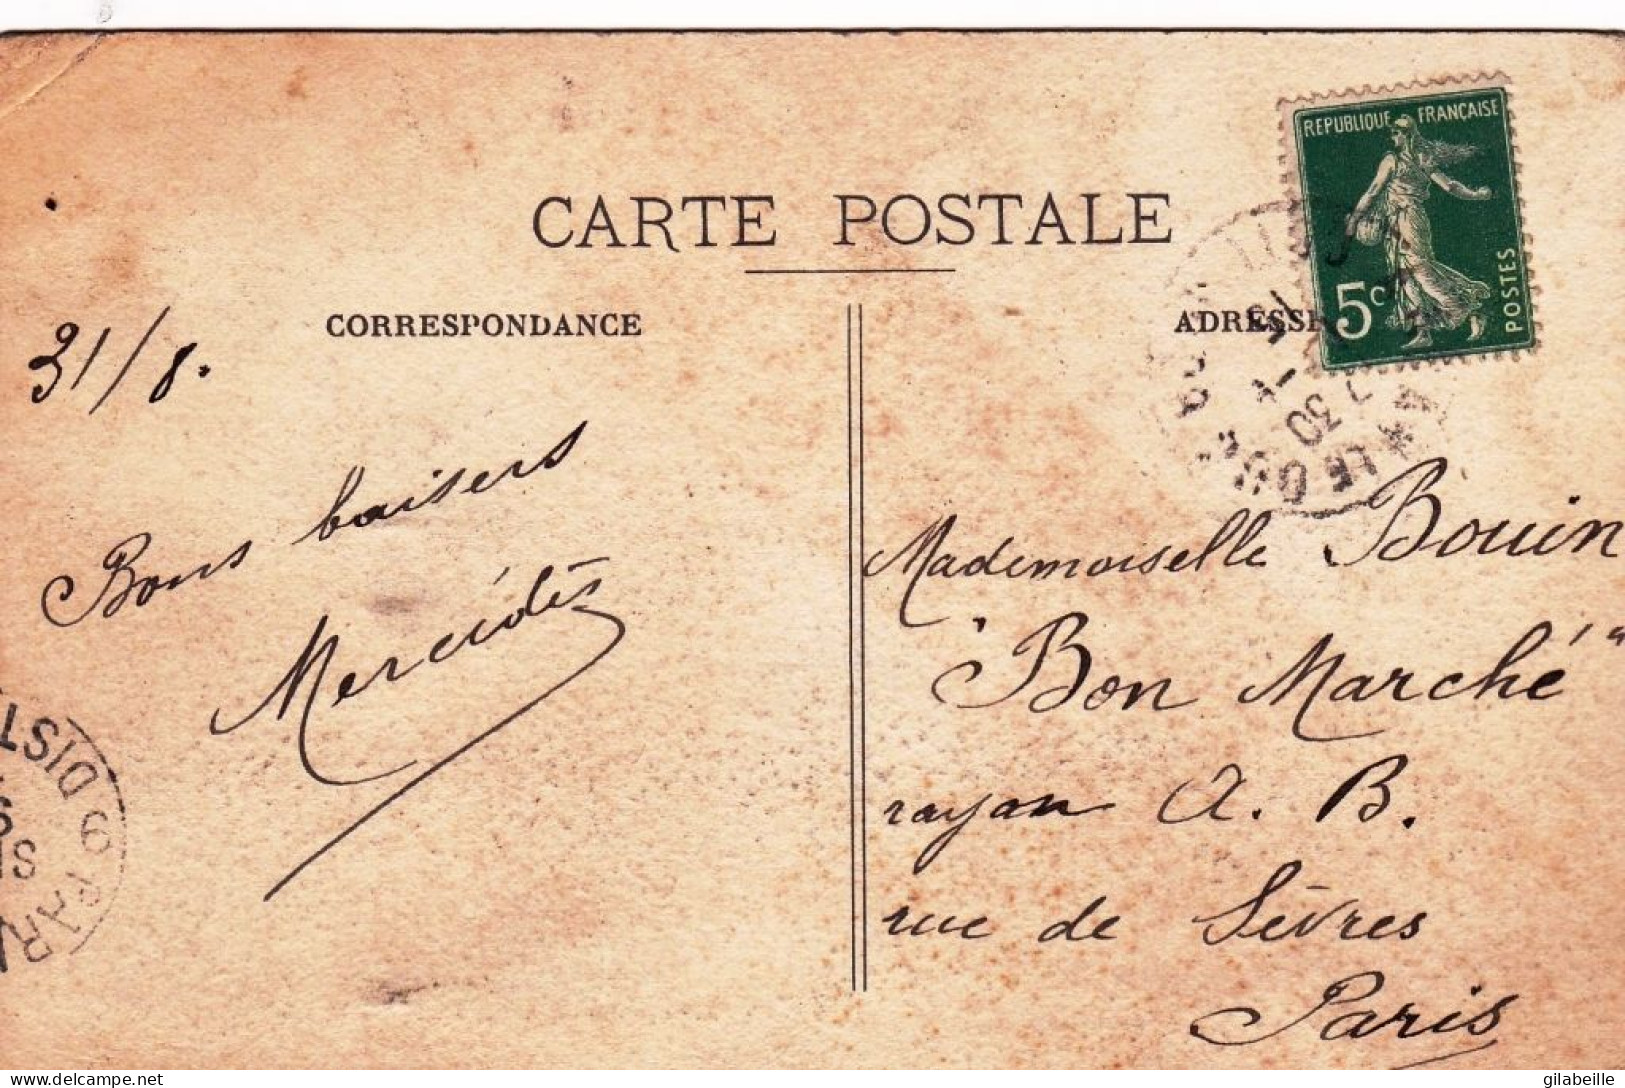 REPUBLIQUE FRANÇAISE
5c
POSTES
CARTE POSTALE
CORRESPONDANCE
ADRESSE
31/8.
Bons baisers
Mercédès
Mademoiselle Bouin
"Bon Marché"
rayon A. B.
rue de Sèvres
Paris
7 30
*LE
9 PAR
DIST
delcampe.net
gilabeille